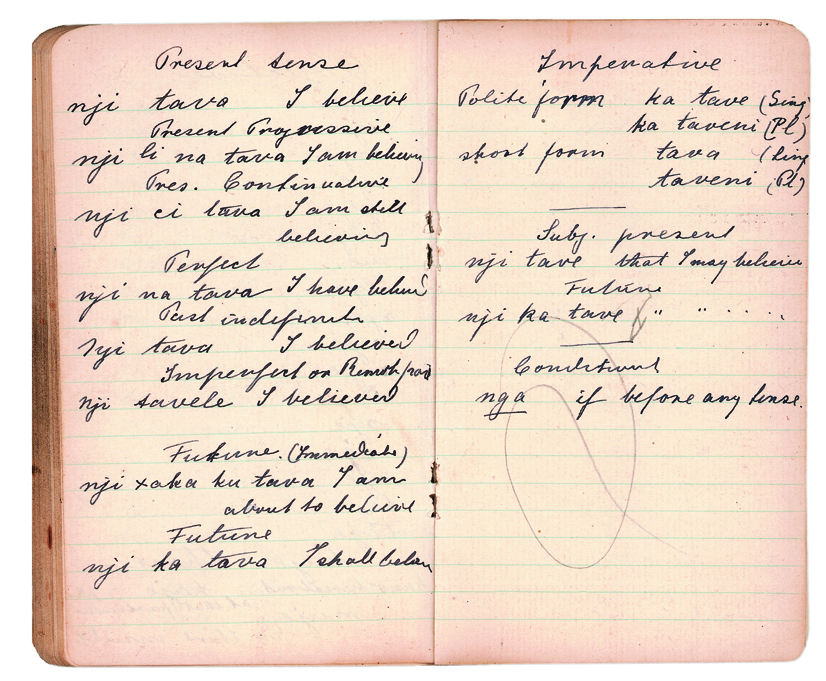 Present tense
nji tava I believe
Present Progressive
nji li na tava I am believing
Pres. Continuative
nji ci tava I am still
believing
Perfect
nji na tava I have believed
Past indefinite
Nji tava I believed
Imperfect or Remote Past
nji tavele I believed
Future. (Immediate)
nji xaka ku tava I am
about to believe
Future
nji ka tava I shall believe
Imperative
Polite form ka tave (Sing)
ka taveni (Pl)
short form tava (Sing
taveni (Pl)
Subj. present
nji tave that I may believe
Future
nji ka tave " " " " "
Conditional
nga if before any tense.